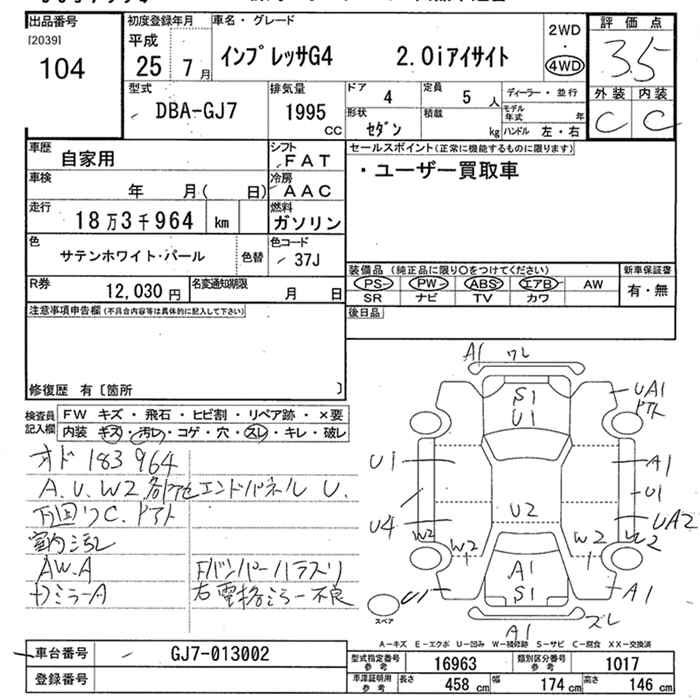 出品番号
[2039]
104
初度登録年月
平成
25年
7月
車名・グレード
インプレッサG4 2.0iアイサイト
2WD
・
4WD
評価点
3.5
外装 内装
C C
型式
DBA-GJ7
排気量
1995
CC
ドア
4
定員
5人
形状
セダン
積載
kg
ディーラー・並行
モデル年式 年
ハンドル 左・右
車歴
自家用
シフト
FAT
車検
年 月( 日)
冷房
AAC
走行
18万3千964 km
燃料
ガソリン
色
サテンホワイト・パール
色替
色コード
37J
セールスポイント(正常に機能するものに限ります)
・ユーザー買取車
装備品(純正品に限り○をつけてください)
PS PW ABS エアB AW
SR ナビ TV カワ
新車保証書
有・無
R券
12,030円
名変通知期限
月 日
後日品
注意事項申告欄(不具合内容等は具体的に記入して下さい)
修復歴 有〔箇所 〕
検査員
記入欄
FW キズ・飛石・ヒビ割・リペア跡・×要
内装 キズ・汚レ・コゲ・穴・スレ・キレ・破レ
オド183964
A.U.W2各所 エンドパネルU.
下回りC.ドアト
室内汚レ
AW.A
ドミラーA
Fバンパーハガレ
右電格ミラー不良
A1 ワレ
S1
U1
UA1
U1
A1
U1
U4
U2
UA2
W2
W2
W2
W2
A1
S1
U1
A1
A1
ズレ
スペア
A-キズ E-エクボ U-凹み W-補修跡 S-サビ C-腐食 XX-交換済
車台番号
GJ7-013002
型式指定番号
参考
16963
類別区分番号
参考
1017
登録番号
車庫証明用
参考
長さ 458cm
幅 174cm
高さ 146cm